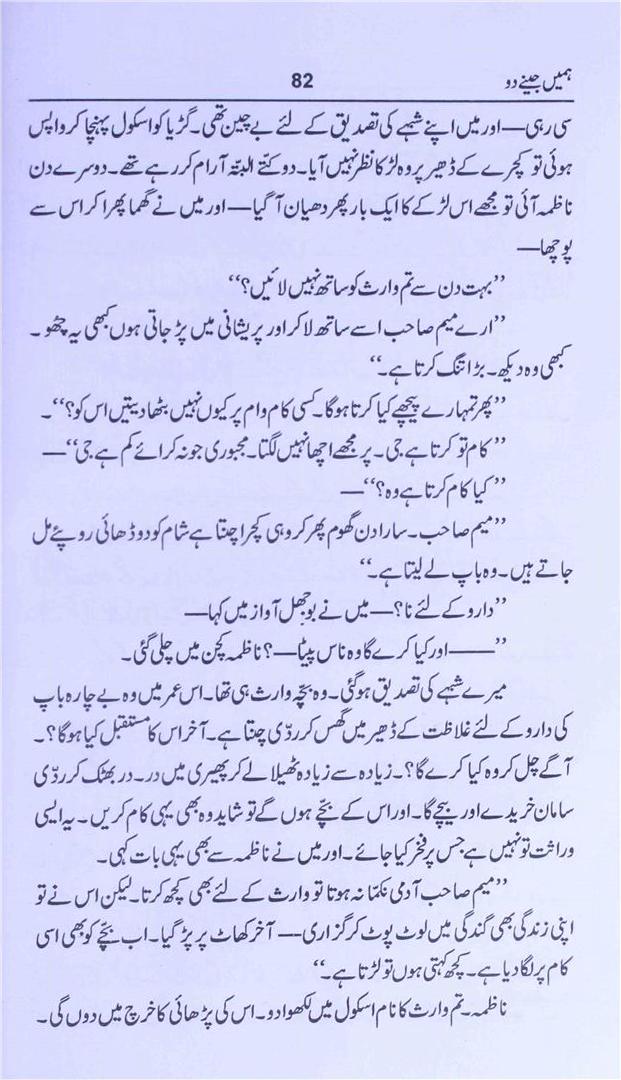 ہمیں جینے دو
82
سی رہی — اور میں اپنے شبہے کی تصدیق کے لئے بے چین تھی۔ گڑیا کو اسکول پہنچا کر واپس
ہوئی تو کچرے کے ڈھیر پر وہ لڑکا نظر نہیں آیا۔ دو کتّے البتّہ آرام کر رہے تھے۔ دوسرے دن
ناظمہ آئی تو مجھے اس لڑکے کا ایک بار پھر دھیان آ گیا — اور میں نے گھما پھرا کر اس سے
پوچھا —
’’بہت دن سے تم وارث کو ساتھ نہیں لائیں؟‘‘
’’ارے میم صاحب اسے ساتھ لا کر اور پریشانی میں پڑ جاتی ہوں کبھی یہ چھو۔
کبھی وہ دیکھ۔ بڑا تنگ کرتا ہے۔‘‘
’’پھر تمہارے پیچھے کیا کرتا ہوگا۔ کسی کام وام پر کیوں نہیں بٹھا دیتیں اس کو؟‘‘۔
’’کام تو کرتا ہے جی۔ پر مجھے اچھا نہیں لگتا۔ مجبوری جو نہ کرائے کم ہے جی‘‘ —
’’کیا کام کرتا ہے وہ؟‘‘ —
’’میم صاحب۔ سارا دن گھوم پھر کر وہی کچرا چنتا ہے شام کو دو ڈھائی روپئے مل
جاتے ہیں۔ وہ باپ لے لیتا ہے۔‘‘
’’دارو کے لئے نا؟ — میں نے بوجھل آواز میں کہا —
’’—— اور کیا کرے گا وہ ناس پیٹا —؟ ناظمہ کچن میں چلی گئی۔
میرے شبہے کی تصدیق ہو گئی۔ وہ بچّہ وارث ہی تھا۔ اس عمر میں وہ بے چارہ باپ
کی دارو کے لئے غلاظت کے ڈھیر میں گھس کر ردّی چنتا ہے۔ آخر اس کا مستقبل کیا ہوگا؟۔
آگے چل کر وہ کیا کرے گا؟۔ زیادہ سے زیادہ ٹھیلا لے کر پھیری میں در۔ در بھٹک کر ردّی
سامان خریدے اور بیچے گا۔ اور اس کے بچّے ہوں گے تو شاید وہ بھی یہی کام کریں۔ یہ ایسی
وراثت تو نہیں ہے جس پر فخر کیا جائے۔ اور میں نے ناظمہ سے بھی یہی بات کہی۔
’’میم صاحب آدمی نکمّا نہ ہوتا تو وارث کے لئے بھی کچھ کرتا۔ لیکن اس نے تو
اپنی زندگی بھی گندگی میں لوٹ پوٹ کر گزاری — آخر کھاٹ پر پڑ گیا۔ اب بچّے کو بھی اسی
کام پر لگا دیا ہے۔ کچھ کہتی ہوں تو لڑتا ہے۔‘‘
ناظمہ۔ تم وارث کا نام اسکول میں لکھوا دو۔ اس کی پڑھائی کا خرچ میں دوں گی۔